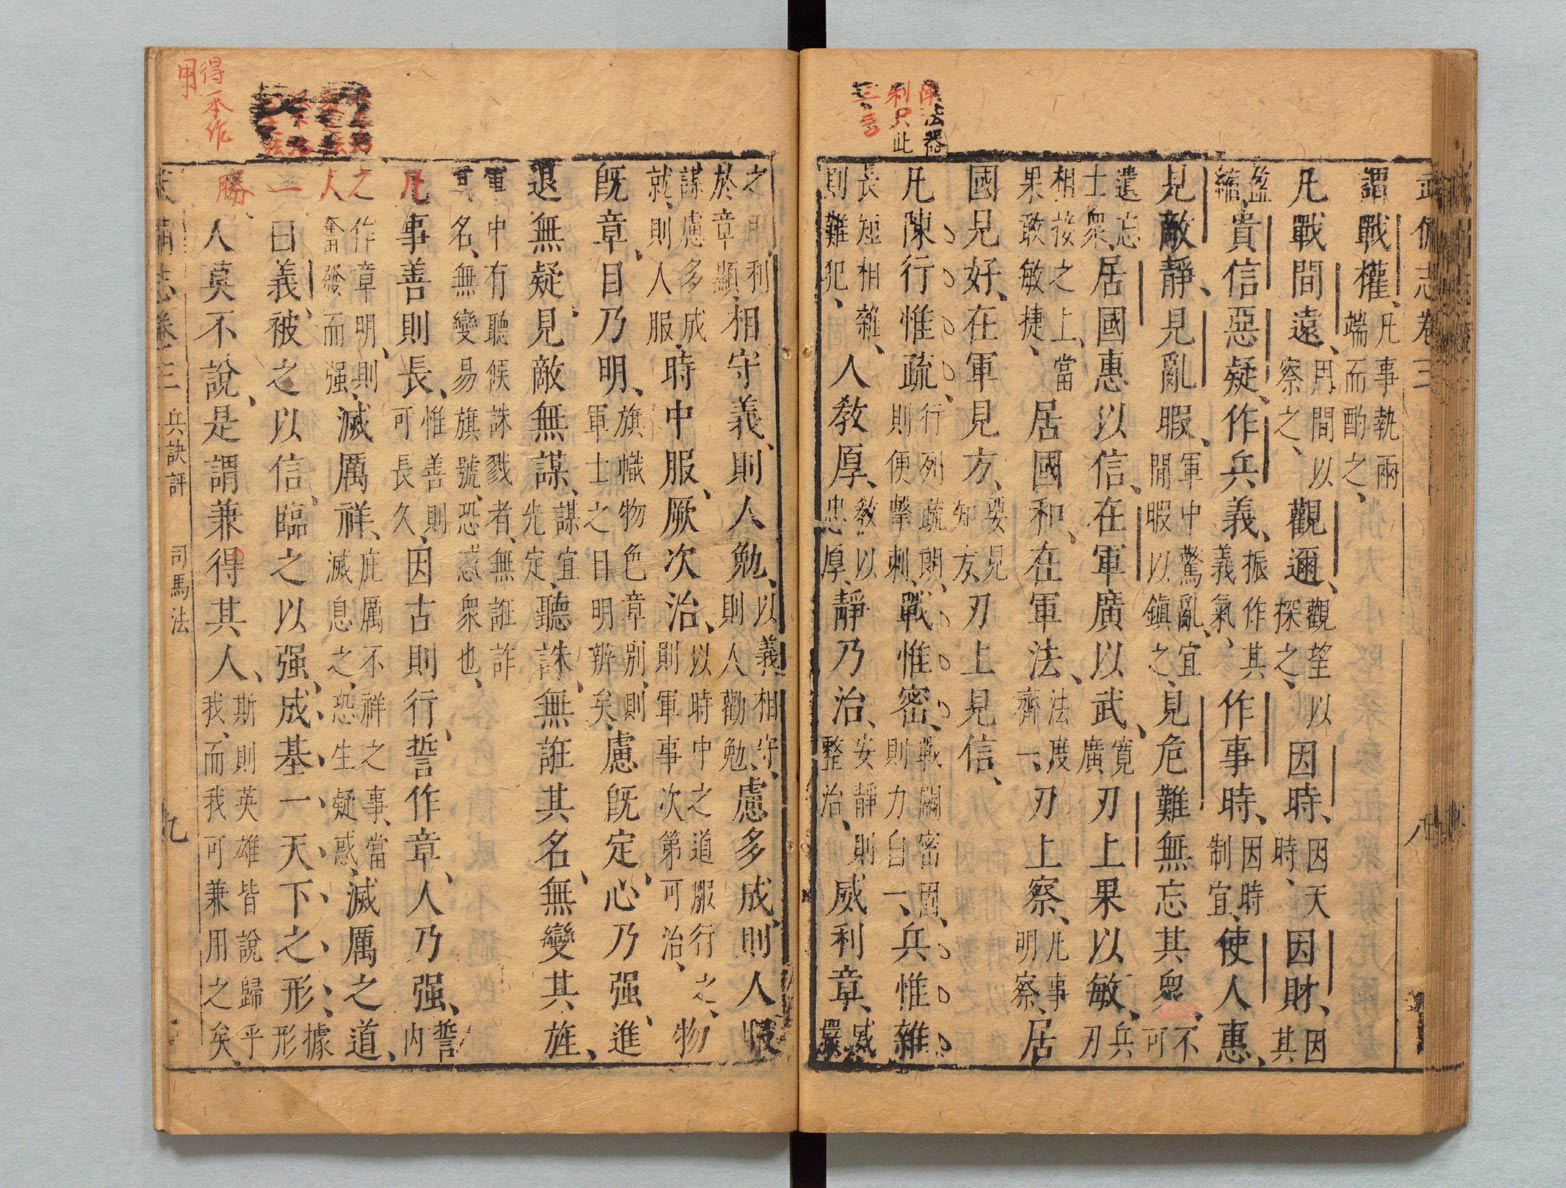 陳法器
利只此
三言
武備志卷三 八
謂戰權、凡事執兩端而酌之、
凡戰間遠、用間以察之、觀邇、觀笙以探之、因時、因天時、因財、因其
盈縮、貴信惡疑、作兵義、振作其義氣、作事時、因時制宜、使人惠、
見敵靜、見亂暇、軍中驚亂、宜閒暇以鎮之、見危難無忘其衆、不可
遺忘士衆、居國惠以信、在軍廣以武、寬廣刃上果以敏、兵刃
相接之上、當果敢敏捷、居國和、在軍法、法度齊一、刃上察、凡事明察、居
國見好、在軍見方、要見知方、刃上見信、
凡陳行惟疏、行列疏開、則便擊刺、戰惟密、戰鬬密固、則力自一、兵惟雜、
長短相雜、則難犯、人教厚、教以忠厚、靜乃治、安靜則整治、威利章、威嚴
之用利、於章顯、相守義、則人勉、以義相守、則人勸勉、慮多成、則人服
謀慮多成就則人服、時中服、厥次治、以時中之道服行之、則軍事次第可治、物
既章、目乃明、旗幟物色章別、則軍士之目明辨矣、慮既定、心乃强、進
退無疑、見敵無謀、謀宜先定、聽誅、無誑其名、無變其旌、
軍中有聽候誅戮者、無誑詐其名、無變易旗號、恐惑衆也、
凡事善則長、惟善則可長久、因古則行、誓作章、人乃强、誓內
之作章明、則人奮發而强、滅厲祥、庇厲不祥之事、當滅息之、恐生疑惑、滅厲之道、
一曰義、被之以信、臨之以强、成基一天下之形、據形
勝人莫不說、是謂兼得其人、斯則英雄皆說歸乎我、而我可兼用之矣、
武備志卷三 兵訣評 司馬法 九
得一本作
用